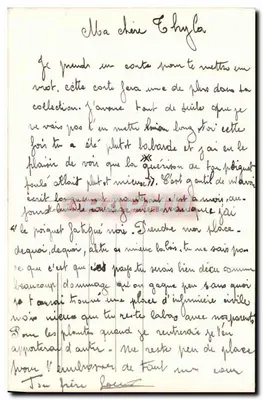 Ma chère Thyla
Je prends un carte pour te mettre un
mot, cette carte fera une de plus dans ta
collection. J'avoue tout de suite que je
ne vais pas t'en mettre bien long, toi cette
fois tu a été plutôt labarde et j'ai eu le
plaisir de voir que la guérison de ton poignet
foulé allait plutôt mieux. C'est gentil de m'avoir
écrit
j'ai
le poignet fatigué moi. Prendre ma place
de quoi, de quoi, alors ne sais pas
ce que c'est que pays tu serais bien déçu comme
beaucoup, dommage qu'on gagne pas sans quoi
je t'aurai trouvé une place d'infirmière civile
mais mieux que tu reste labas avec nos parents
Pour les plantes quand je rentrerais je t'en
apporterai d'autres. Me reste peu de place
pour t'embrasser de tout mon cœur
Ton frère